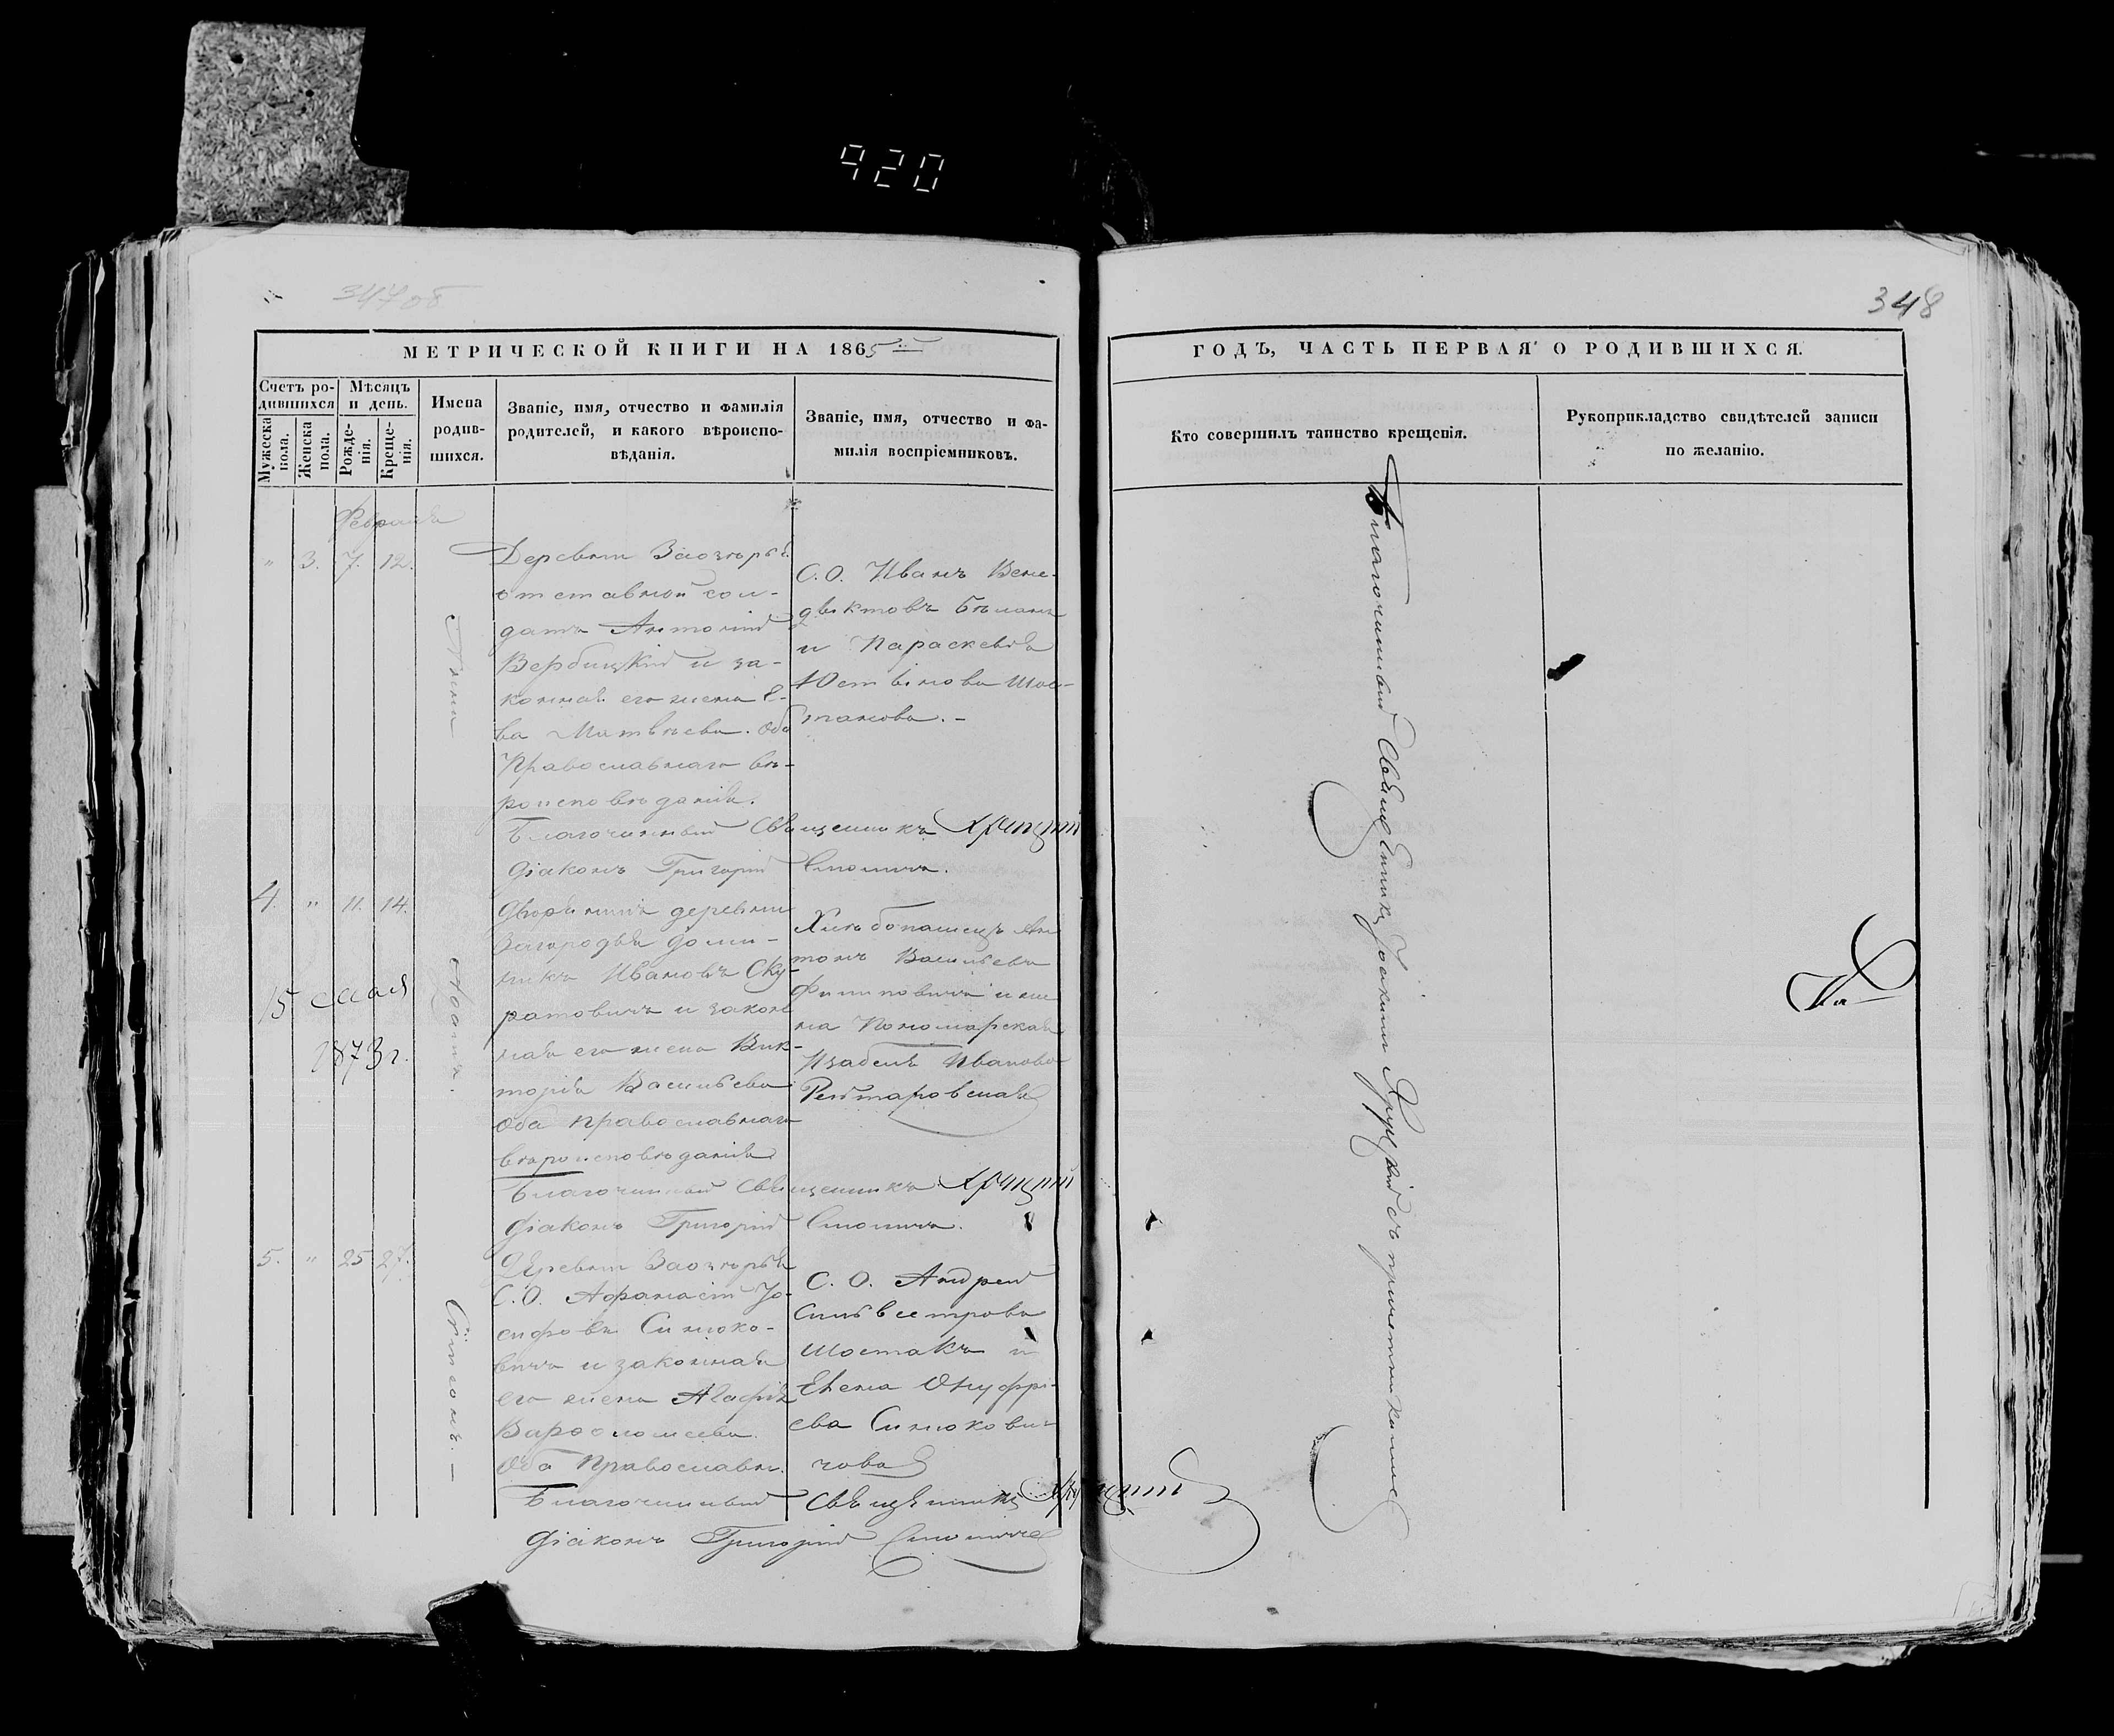 920
347об
348
МЕТРИЧЕСКОЙ КНИГИ НА 1865й
ГОДЪ, ЧАСТЬ ПЕРВАЯ О РОДИВШИХСЯ.
Счетъ ро-
дившихся
Мужеска
пола.
Женска
пола.
Мѣсяцъ
и день.
Рожде-
нія.
Креще-
нія.
Имена
родив-
шихся.
Званіе, имя, отчество и фамилія
родителей, и какого вѣроиспо-
вѣданія.
Званіе, имя, отчество и фа-
милія воспріемниковъ.
Кто совершилъ таинство крещенія.
Рукоприкладство свидѣтелей записи
по желанію.
Февраля
" 3. 7. 12.
Анна
Деревни Заозерья
отставной сол-
датъ Антоній
Вербицкій и за-
конная его жена Е-
ва Матвѣева. Оба
Православнаго вѣ-
роисповѣданія.
С. О. Иванъ Вене-
диктовъ
и Параскевія
Юстинова Шос-
такова. -
Благочинный Священникъ Хруцкій
Діаконъ Григорій
4. " 11. 14.
15 Мая
1873 г.
Іоаннъ.
Дворянинъ деревни
Загородья Доми-
никъ Ивановъ Ску-
ратовичъ и закон
ная его жена Вик-
торія Васильева
Оба православнаго
вѣроисповѣданія
Хлѣбопашецъ Ан
тонъ Васильевъ
Филиповичъ и же
на Пономарская
Изабела Иванова
Благочинный Священникъ Хруцкій
Діаконъ Григорій
5. " 25 27.
Сѵмеонъ. -
Деревни Заозерья
С. О. Афанасій Іо-
сифовъ Синюко-
вичъ и законная
его жена Агафія
Варфоломеева.
Оба Православн.
С. О. Андрей
Сильвестровъ
Шостакъ и
Елена Онуфрі-
ева Синюкови-
чова
Благочинный Священникъ Хруцкій
Діаконъ Григорій
Благочинный Священникъ Іоакимъ Хруцкій съ причетниками